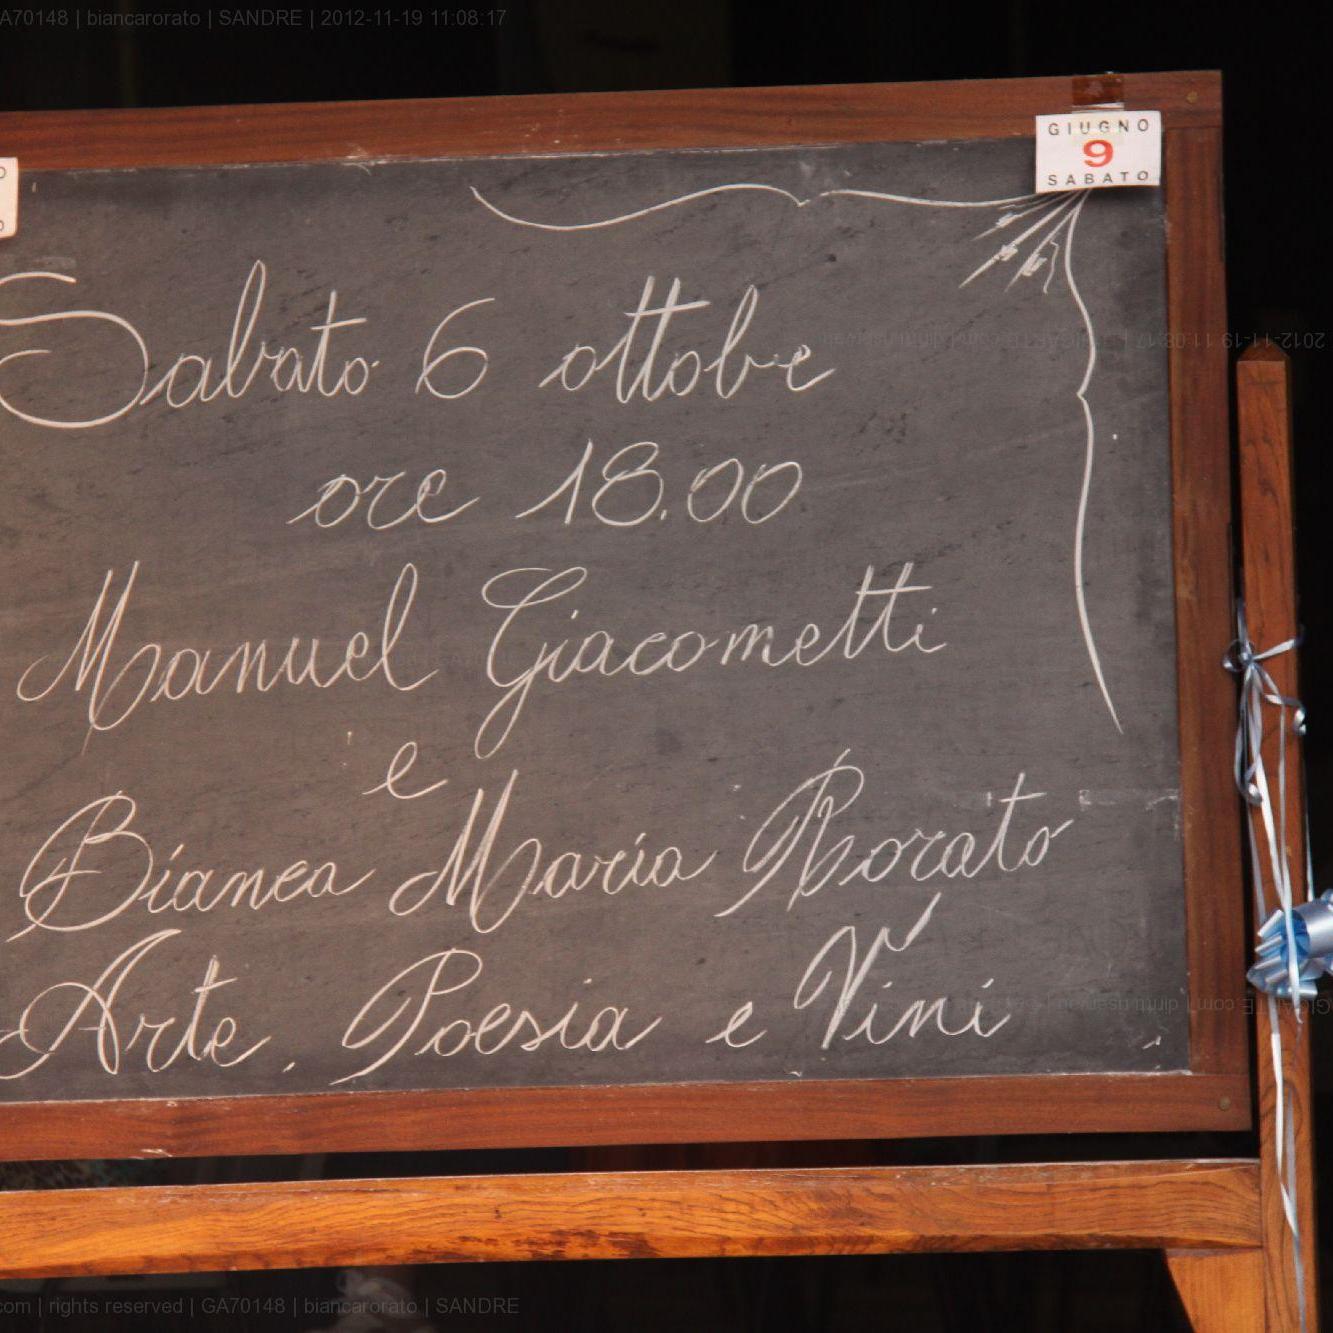 A70148 | biancarorato | SANDRE | 2012-11-19 11:08:17
GIUGNO
9
SABATO
Sabato 6 ottobre
ore 18.00
Manuel Giacometti
e
Bianca Maria Rorato
Arte, Poesia e Vini
com | rights reserved | GA70148 | biancarorato | SANDRE